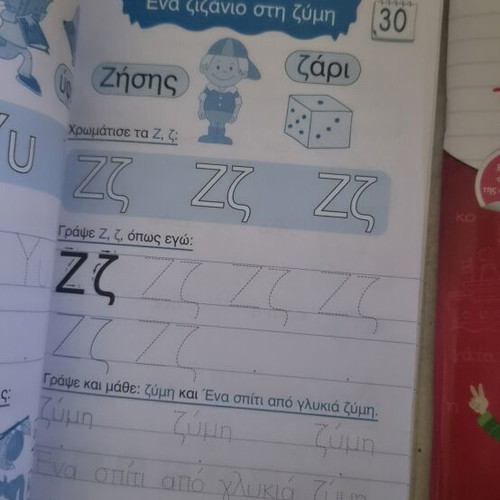 Ένα ζιζάνιο στη ζύμη
30
Ζήσης
ζάρι
Χρωμάτισε τα Ζ, ζ:
Ζζ Ζζ Ζζ
Γράψε Ζ, ζ, όπως εγώ:
Ζζ Ζζ Ζζ Ζζ
Ζζ Ζζ
Γράψε και μάθε: ζύμη και Ένα σπίτι από γλυκιά ζύμη.
ζύμη ζύμη ζύμη
Ένα σπίτι από γλυκιά ζύμη